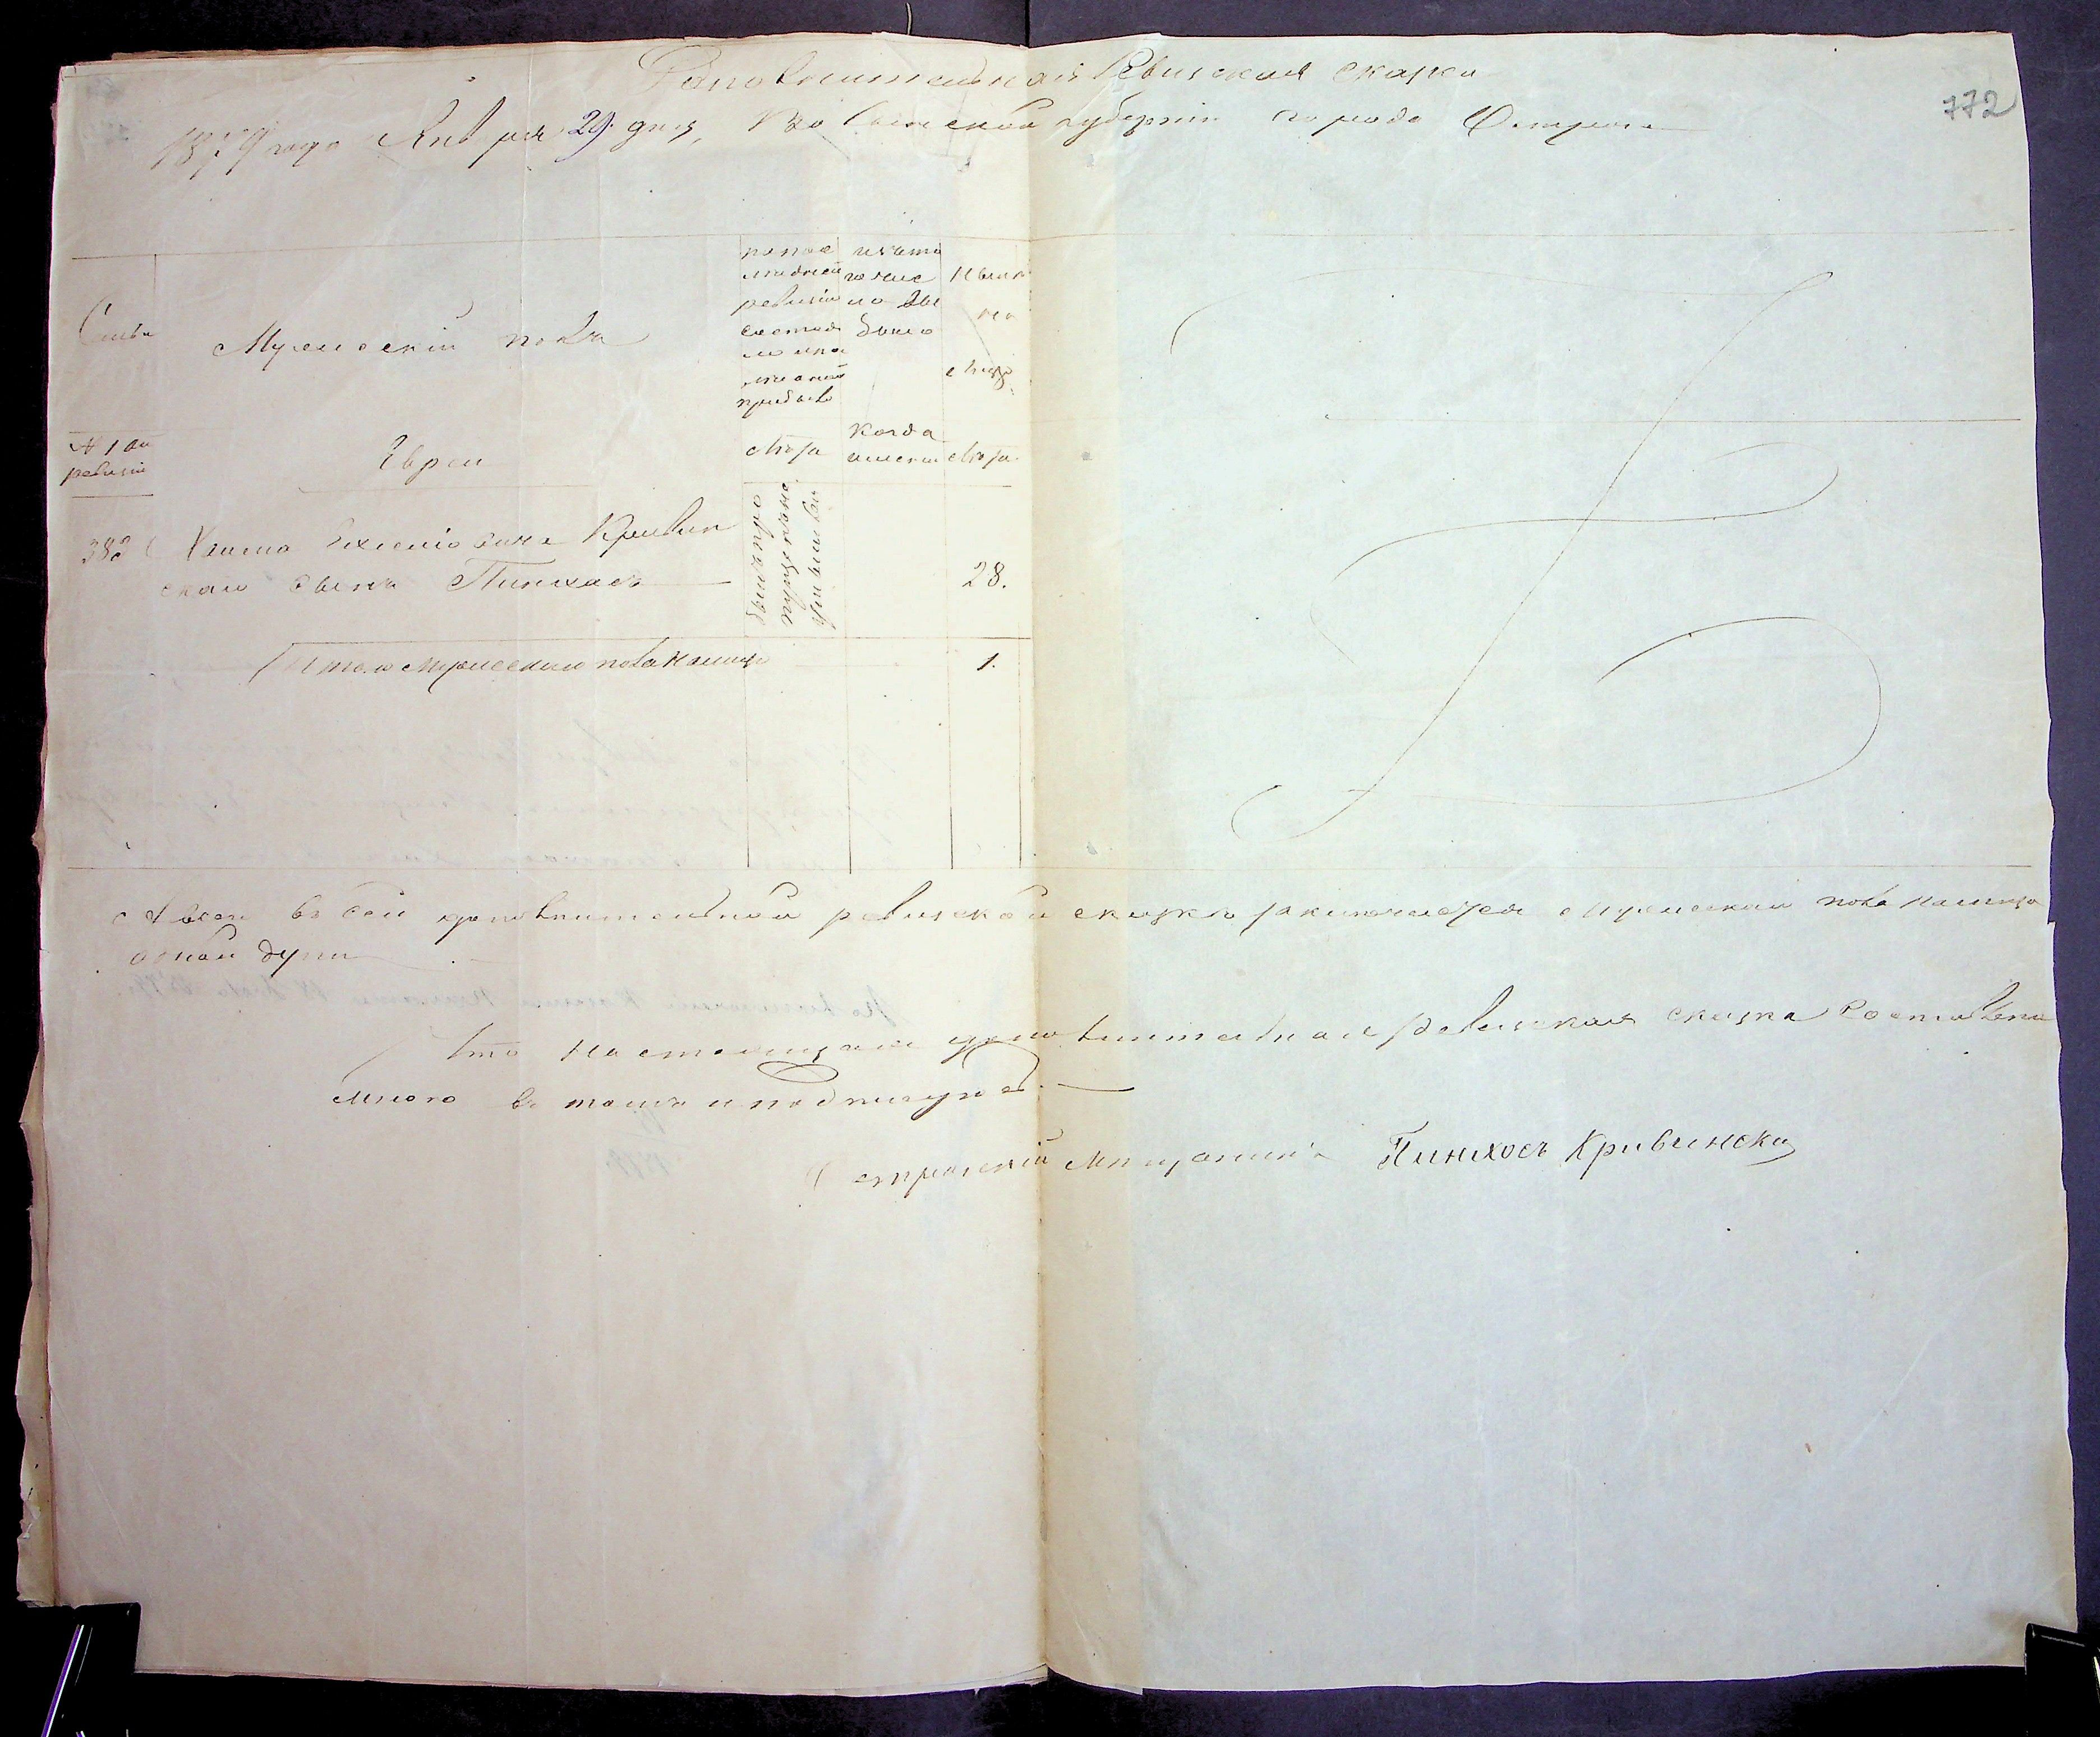 Дополнительная Ревизская сказка
772
1879 года Января 29 дня, Волынской губернии города Острога
Семьи
Мужескій полъ
по последней ревизіи состояло и после оной прибыло
изъ того числа выбыло
Ныне на лицо
№ 10й ревизіи
Евреи
лета
когда именно
лета
383
Хаима Кривин
скаго сынъ Пинхасъ
28.
былъ пропущенъ
Итого Мужескаго пола налицо
1.
А всего въ сей дополнительной ревизской сказкѣ заключается Мужескаго пола налицо
одной души
Что настоящая дополнительная ревизская сказка составлена
мною въ томъ и подписуюсь
Острожскій Мещанинъ Пинхосъ Кривински